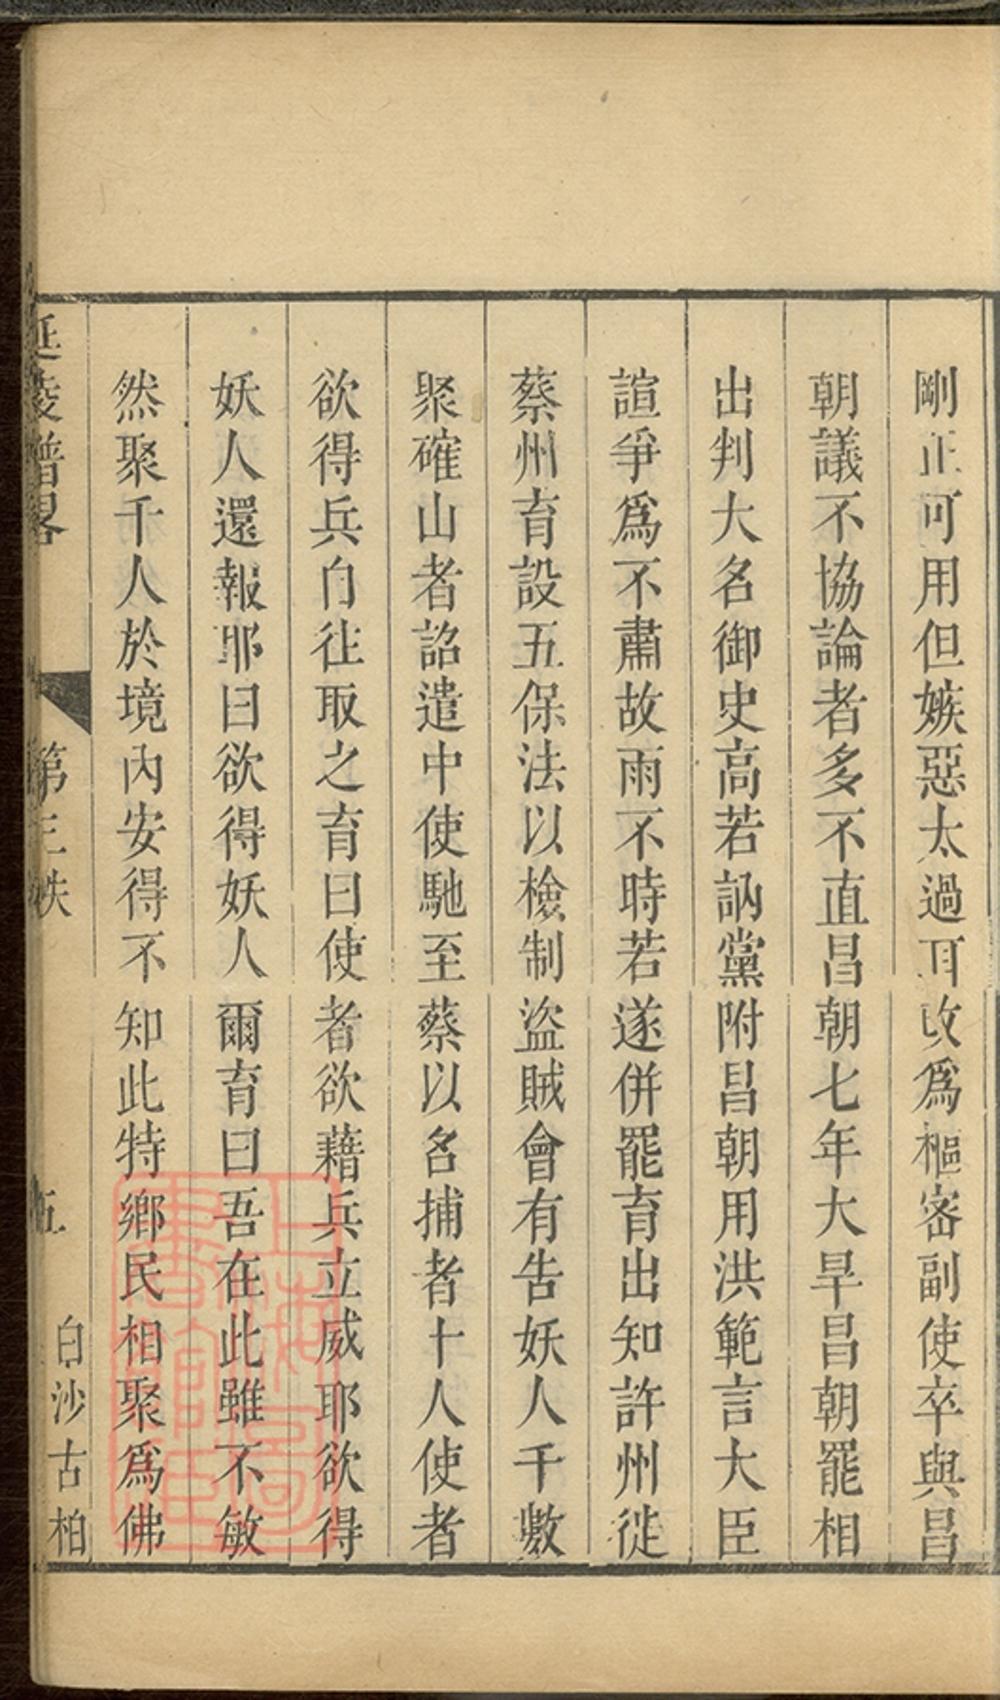 剛正可用但嫉惡太過耳改爲樞密副使卒與昌
朝議不協論者多不直昌朝七年大旱昌朝罷相
出判大名御史高若訥黨附昌朝用洪範言大臣
諠爭爲不肅故雨不時若遂併罷育出知許州徙
蔡州育設五保法以檢制盜賊會有告妖人千數
聚確山者詔遣中使馳至蔡以名捕者十人使者
欲得兵自往取之育曰使者欲藉兵立威耶欲得
妖人還報耶曰欲得妖人爾育曰吾在此雖不敏
然聚千人於境內安得不知此特鄉民相聚爲佛
延陵譜畧 第三帙 五 白沙古柏